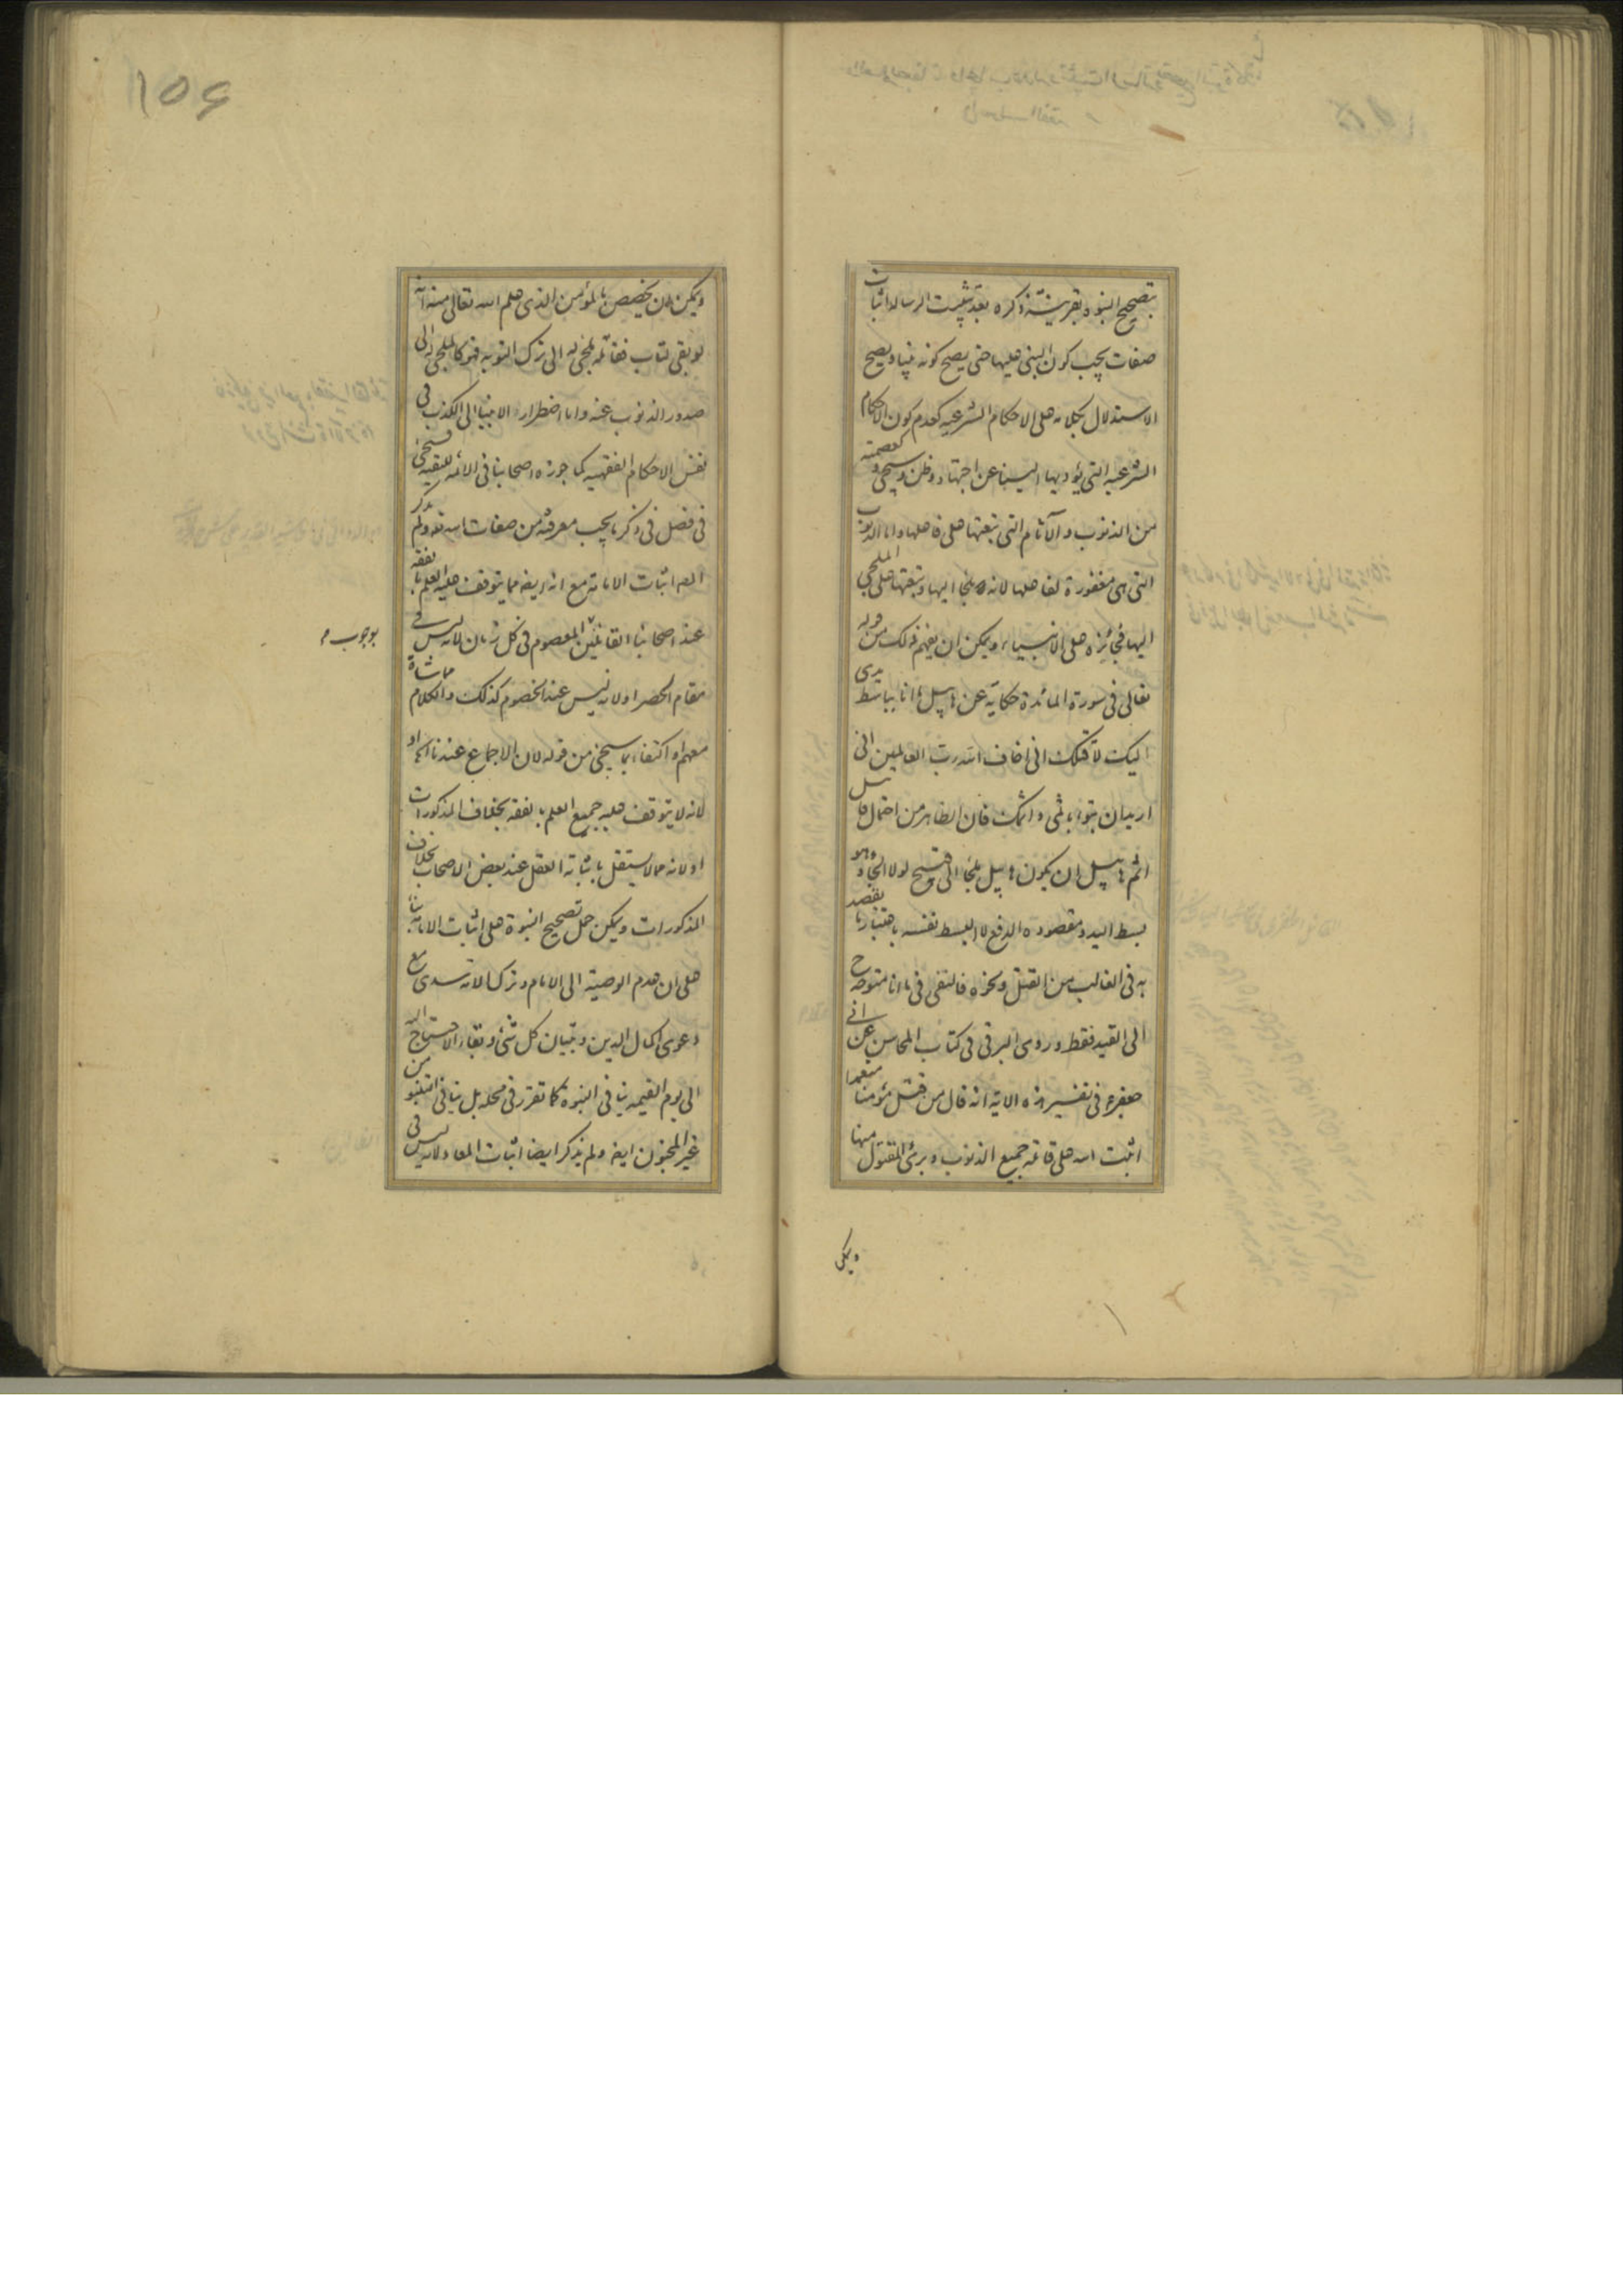 بتصحيح النبوة بقرينة ذكره بعد تثبيت الرسالة اثبات
صفات يجب كون النبي عليها حتى يصح كونه نبيا ويصح
الاستدلال بكلامه على الاحكام الشرعيه كعدم كون الاحكام
الشرعيه التي يؤديها الينا عن اجتهاد وظن وسيجى وكعصمته
من الذنوب والآثام التي تبعتها على فاعلها واما الذنوب
التي هي مغفورة لفاعلها لانه ملجأ اليها وتبعتها على الملجى
اليها فجائزه على الانبياء ويمكن ان يفهم ذلك من قوله
تعالى في سورة المائدة حكاية عن هابيل ما انا بباسط يدى
اليك لاقتلك اني اخاف الله رب العالمين انى
اريد ان تبوا باثمى واثمك فان الظاهر من احتمال قابيل
اثم هابيل ان يكون هابيل ملجأ الى قبيح لولا الالجاء وهو
بسط اليد ومقصوده الدفع لا البسط نفسه باعتبار ما يقصد
به في الغالب من القتل ونحوه فالنفى فى ما انا متوجه ح
الى القيد فقط وروى البرقى في كتاب المحاسن عن ابى
جعفر ع فى تفسير هذه الاية انه قال من قتل مؤمنا متعمدا
اثبت الله على قاتله جميع الذنوب وبرئ المقتول منها
ويمكن
١٥٤
ويمكن ان يخصص بالمؤمن الذى علم الله تعالى منه انه
لو بقى لتاب فقاتله ملجئ له الى ترك التوبه فهو كالملجئ له الى
صدور الذنوب عنه واما اضطرار الانبيا الى الكذب فى
نفس الاحكام الفقهيه كما جوزه اصحابنا فى الائمه للتقيه فسيجئ
فى فصل فى ذكر ما يجب معرفته من صفات الله تعه ولم يذكر
المص اثبات الامامة مع انه ايضه مما يتوقف عليه العلم بالفقه
عند اصحابنا القائلين المعصوم فى كل زمان لانه ليس فى
بوجوب م
مقام الحصر او لانه ليس عند الخصوم كذلك والكلام مماشاة
معهم او اكتفاء بما سيجئ من قوله لان الاجماع عندنا اه او
لانه لا يتوقف عليه جميع العلم بالفقه بخلاف المذكورات
او لانه مما لا يستقل باثباته العقل عند بعض الاصحاب بخلاف
المذكورات ويمكن حمل تصحيح النبوة على اثبات الامامة بناء
على ان عدم الوصية الى الامام وترك الامة سدى مع
دعوى اكمال الدين وتبيان كل شئ وبقاء الاحتياج اليه
الى يوم القيمه ينافى النبوة كما تقرر فى محله بل ينافى التنبو من
غير المجنون ايضه ولم يذكر ايضا اثبات المعاد لانه ليس فى